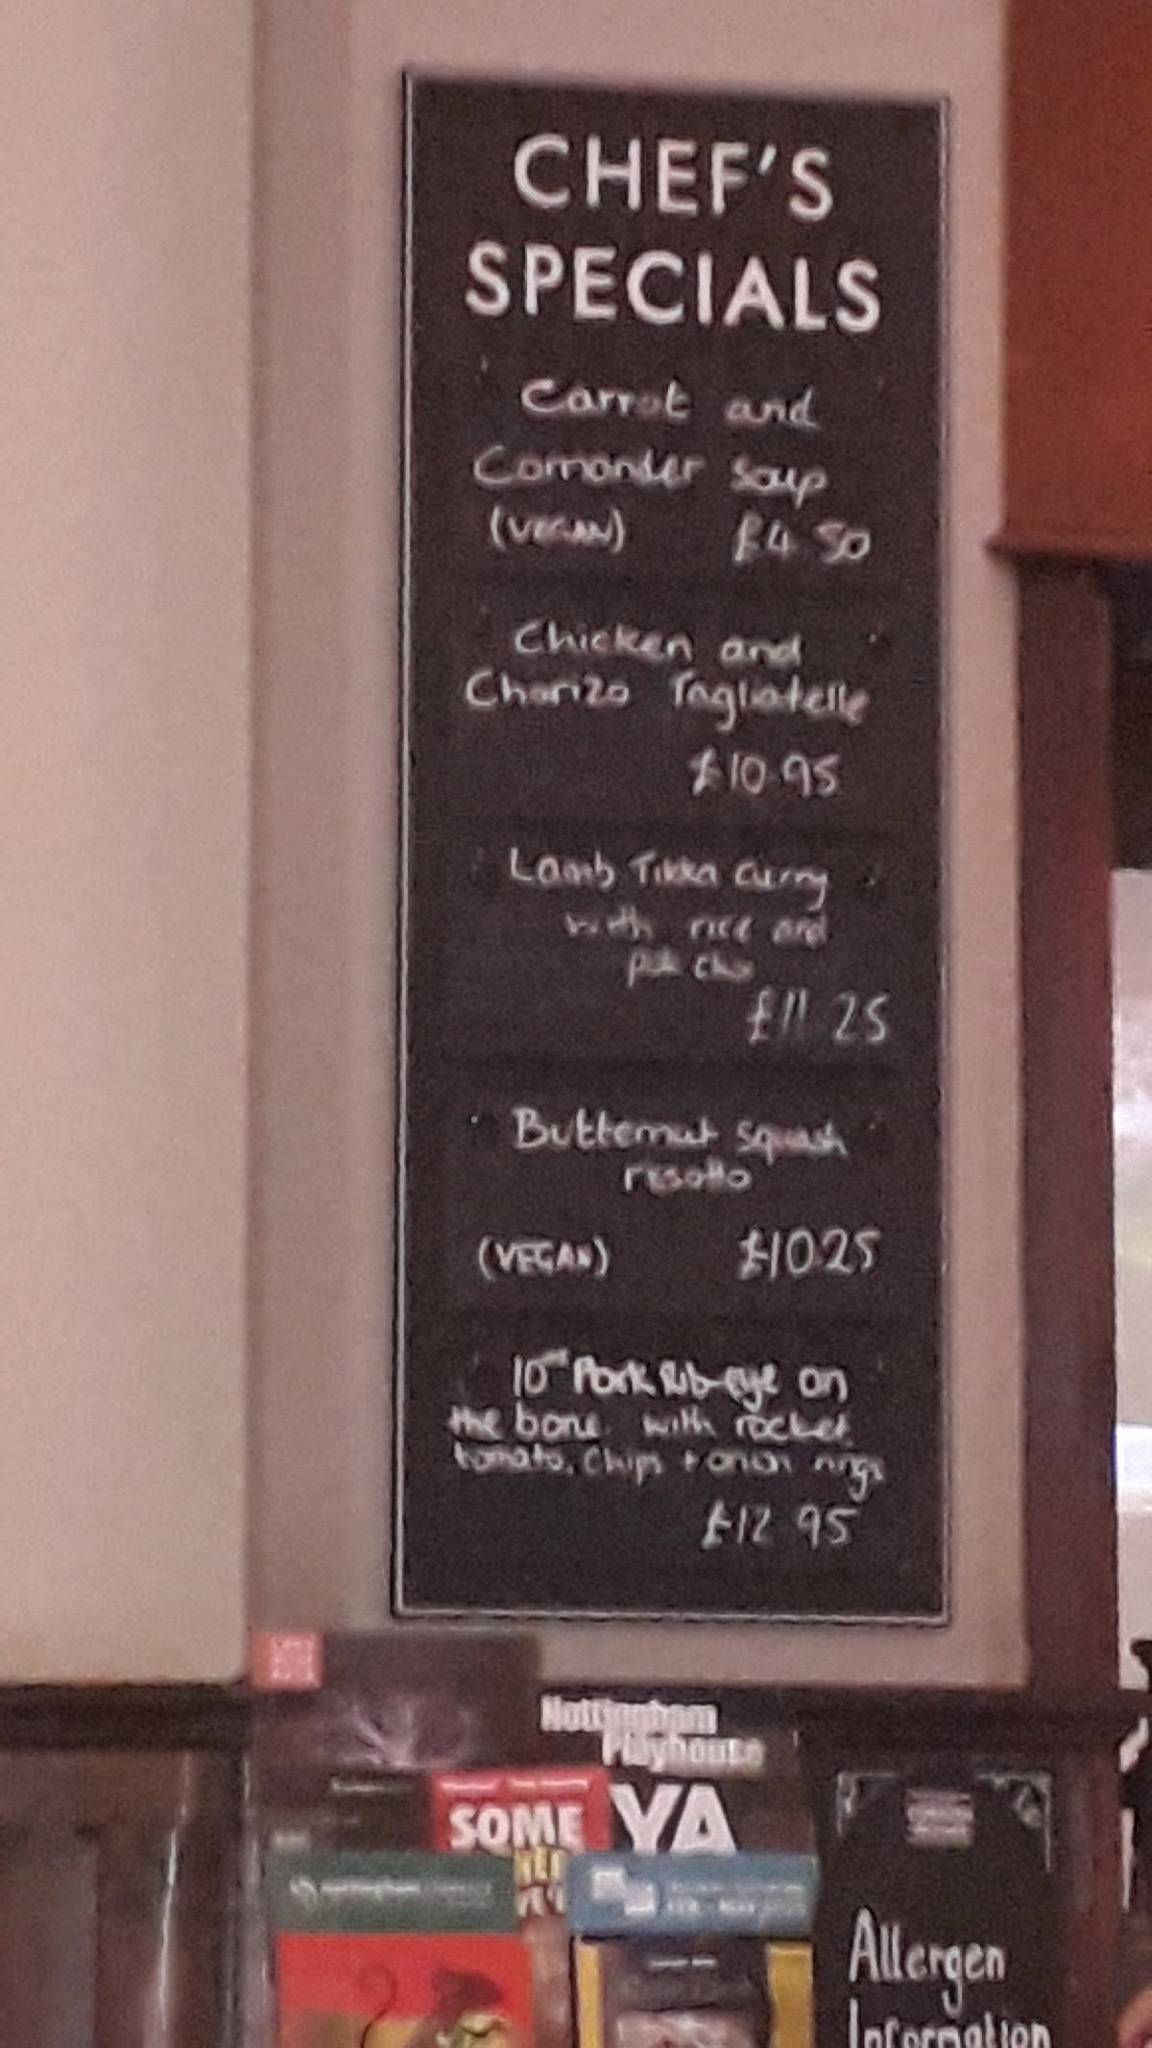 CHEF'S
SPECIALS
Carrot and
Coriander Soup
(VEGAN) £4.50
Chicken and
Chorizo Tagliatelle
£10.95
Lamb Tikka Curry
with rice and
£11.25
Butternut Squash
risotto
(VEGAN) £10.25
10oz Pork Rib-eye on
the bone with rocket
tomato, Chips + onion rings
£12.95
Nottingham
Playhouse
SOME
YA
Allergen
Information